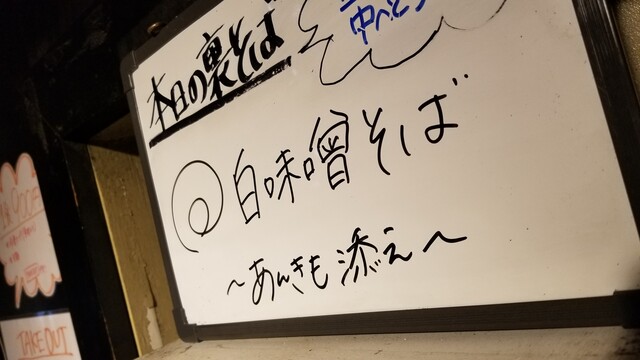 本日の裏そば
中へどう
@白味噌そば
〜あんきも添え〜
TAKE OUT